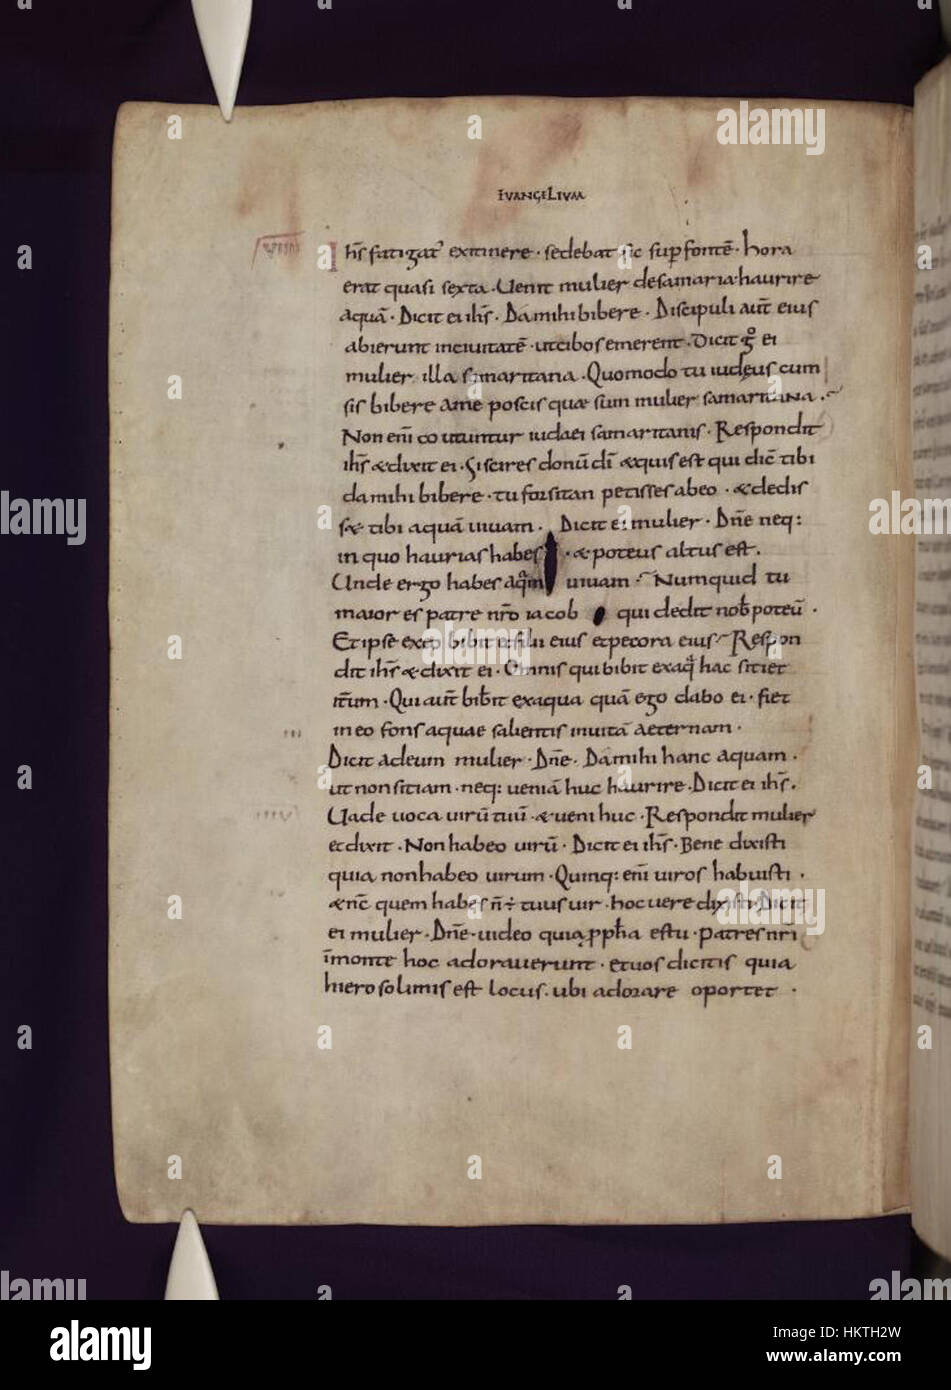 EVANGELIUM
ihs̄ fatigat' exitinere · sedebat sic sup fontē · hora
erat quasi sexta · Uenit mulier desamaria · haurire
aquā · Dicit ei ihs̄ · Da mihi bibere · Discipuli aut̄ eius
abierunt inciuitatē · utcibos emerent · Dicit gͦ ei
mulier illa samaritana · Quomodo tu iudęus cum
sis bibere ame poscis quae sum mulier samaritana ·
Non eni co utuntur iudaei samaritanis · Respondit
ihs̄ & dixit ei · Si scires donū di & quis est qui dic̄ tibi
da mihi bibere · tu forsitan petisses abeo · & dedis
s& tibi aquā uiuam · Dicit ei mulier · Dn̄e neq:
in quo haurias habes · & poteus altus est ·
Unde ergo habes aqm uiuam · Numquid tu
maior es patre nr̄o iacob qui dedit nob poteū ·
Et ipse exeo bibit & filii eius et pecora eius · Respon
dit ihs̄ & dixit ei · Omnis qui bibit exaq hac sitiet
it̄um · Qui aut̄ bibit exaqua quā ego dabo ei · fiet
in eo fons aquae salientis inuitā aeternam ·
Dicit adeum mulier · Dn̄e · Da mihi hanc aquam ·
ut non sitiam · neq: ueniā huc haurire · Dicit ei ihs̄ ·
Uade uoca uirū tuū · & ueni huc · Respondit mulier
et dixit · Non habeo uirū · Dicit ei ihs̄ · Bene dixisti
quia non habeo uirum · Quinq: eni uiros habuisti ·
& nc̄ quem habes n̄ ÷ tuus uir · hoc uere dixisti · Dicit
ei mulier · Dn̄e · uideo quia ppha es tu · Patres nr̄i
īmonte hoc adorauerunt · et uos dicitis quia
hierosolimis est locus · ubi adorare oportet ·
alamy
Image ID: HKTH2W
www.alamy.com